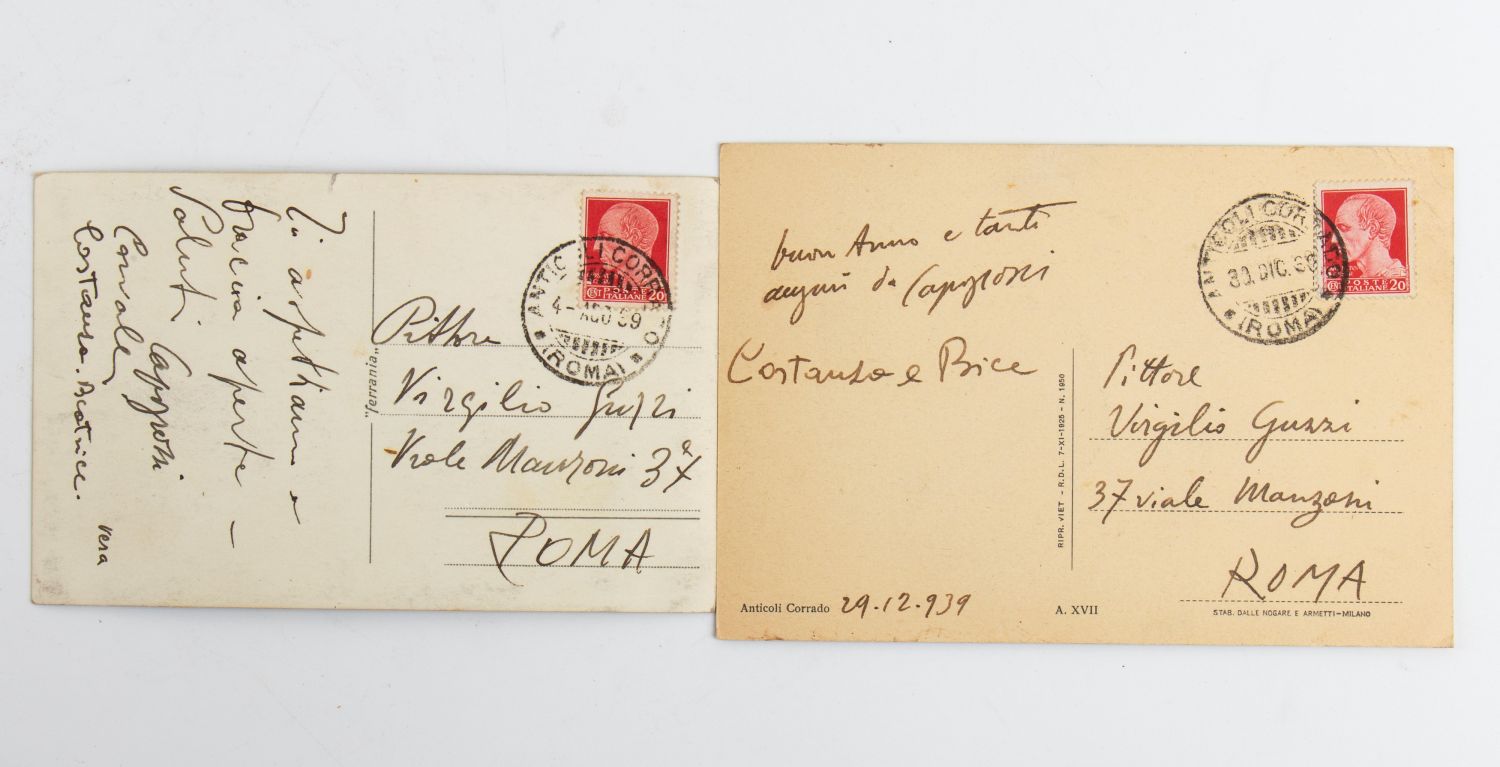 Ti aspettiamo a
braccia aperte —
Saluti Capogrossi
Canale
Costanza. Beatrice.
Vera
"Ferrania"
POSTE
ITALIANE
CENT 20
ANTICOLI CORRADO
4 - AGO 39
(ROMA)
Pittore
Virgilio Guzzi
Viale Manzoni 37
ROMA
buon Anno e tanti
auguri da Capogrossi
Costanza e Bice
Anticoli Corrado 29.12.939
A. XVII
RIPR. VIET - R.D.L. 7-XI-1925 - N. 1950
POSTE
ITALIANE
CENT 20
ANTICOLI CORRADO
30. DIC. 39
(ROMA)
Pittore
Virgilio Guzzi
37 viale Manzoni
ROMA
STAB. DALLE NOGARE E ARMETTI-MILANO